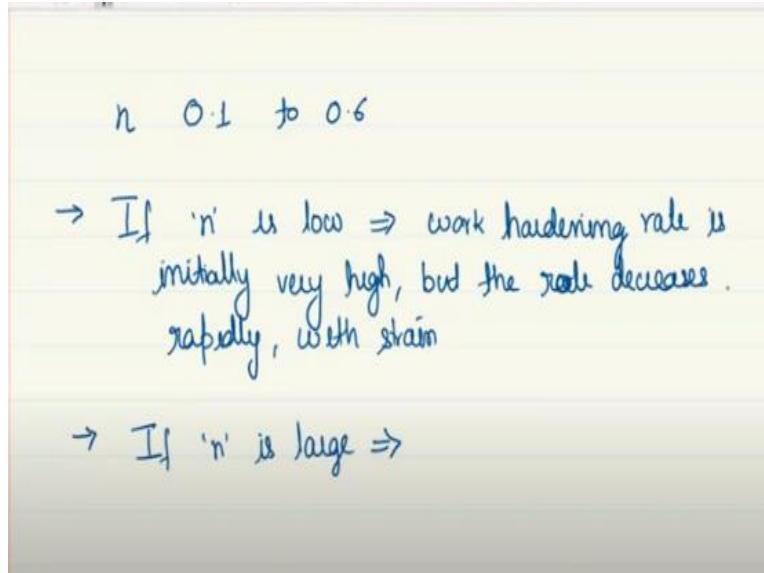 n 0.1 to 0.6
→ If 'n' is low ⇒ work hardening rate is
initially very high, but the rate decreases.
rapidly, with strain
→ If 'n' is large ⇒